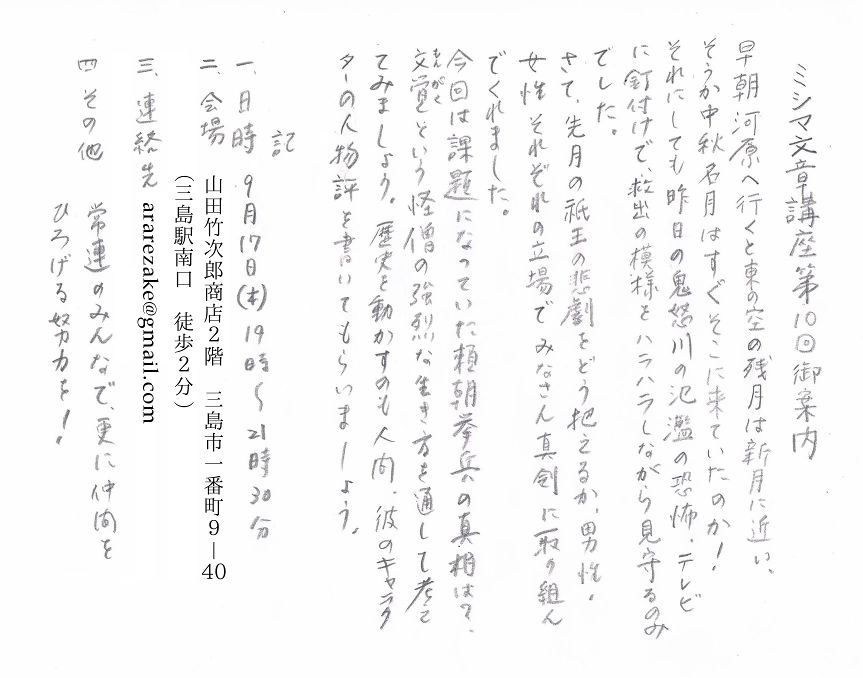 ミシマ文章講座第10回御案内
早朝河原へ行くと東の空の残月は新月に近い、
そうか中秋名月はすぐそこに来ていたのか！
それにしても昨日の鬼怒川の氾濫の恐怖、テレビ
に釘付けで、救出の模様をハラハラしながら見守るのみ
でした。
さて、先月の祇王の悲劇をどう把えるか、男性・
女性それぞれの立場でみなさん真剣に取り組ん
でくれました。
今回は課題になっていた頼朝挙兵の真相は？、
文覚(もんがく)という怪僧の強烈な生き方を通して考え
てみましょう。歴史を動かすのも人間、彼のキャラク
ターの人物評を書いてもらいましょう。
記
一、日時　9月17日(木)19時〜21時30分
二、会場　山田竹次郎商店２階　三島市一番町９－40
（三島駅南口　徒歩２分）
三、連絡先　ararezake@gmail.com
四　その他　常連のみんなで、更に仲間を
ひろげる努力を！